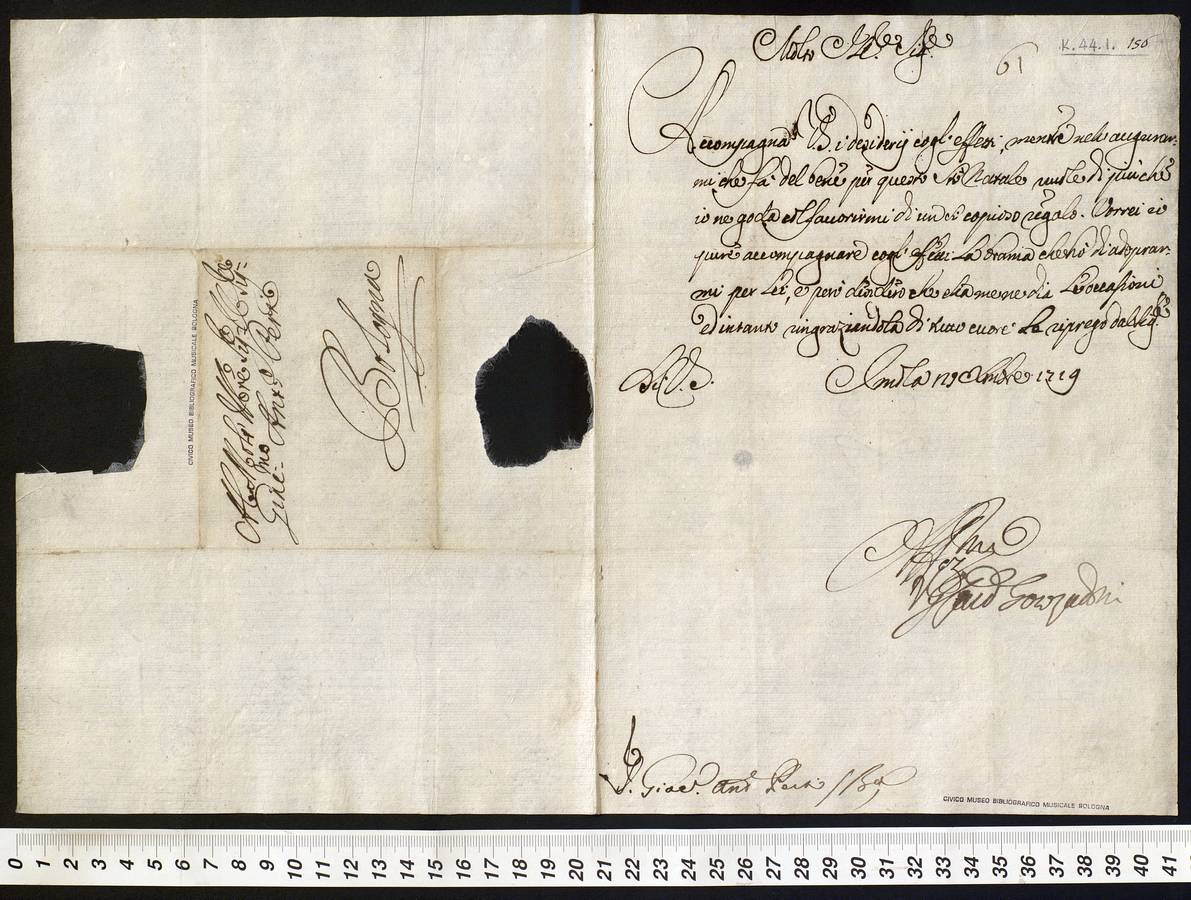 Molto Ill.re Sig.re
61
K.44.1. 156
Accompagna V.S. i desiderij cogl'effetti, mentre nell' augurar-
mi che fa del bene per questo S.to Natale vuole di più che
io ne goda col favorirmi di un sì copioso regalo. Vorrei io
pure accompagnare cogl'effetti la brama che ho di adoprar-
mi per Lei, e però che ella me ne dia l'occasioni
ed intanto ringraziandola di vivo cuore La riprego dal Sig.re
Di V.S.
Imola 29 Xmbre 1719
Aff.mo
Gozzadini
S. Giac. Ant. Perti / Bol.
CIVICO MUSEO BIBLIOGRAFICO MUSICALE BOLOGNA
Al Molto Ill.re Sig.re
Giac-mo Ant.o Perti
Bologna
CIVICO MUSEO BIBLIOGRAFICO MUSICALE BOLOGNA
0 1 2 3 4 5 6 7 8 9 10 11 12 13 14 15 16 17 18 19 20 21 22 23 24 25 26 27 28 29 30 31 32 33 34 35 36 37 38 39 40 41